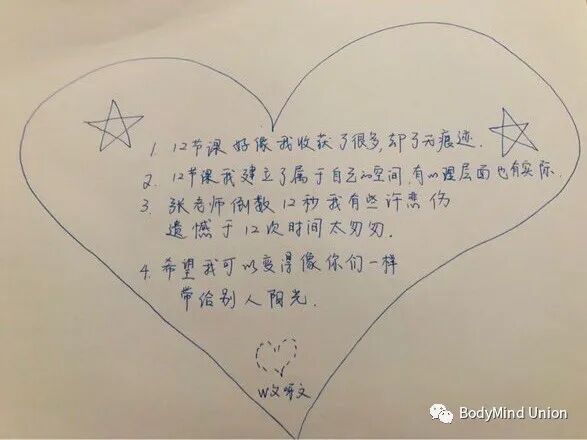 1. 12节课好像我收获了很多,却了无痕迹.
2. 12节课我建立了属于自己的空间,有心理层面也有实际.
3. 张老师倒数12秒我有些许悲伤
遗憾于12次时间太匆匆.
4. 希望我可以变得像你们一样
带给别人阳光.
BodyMind Union